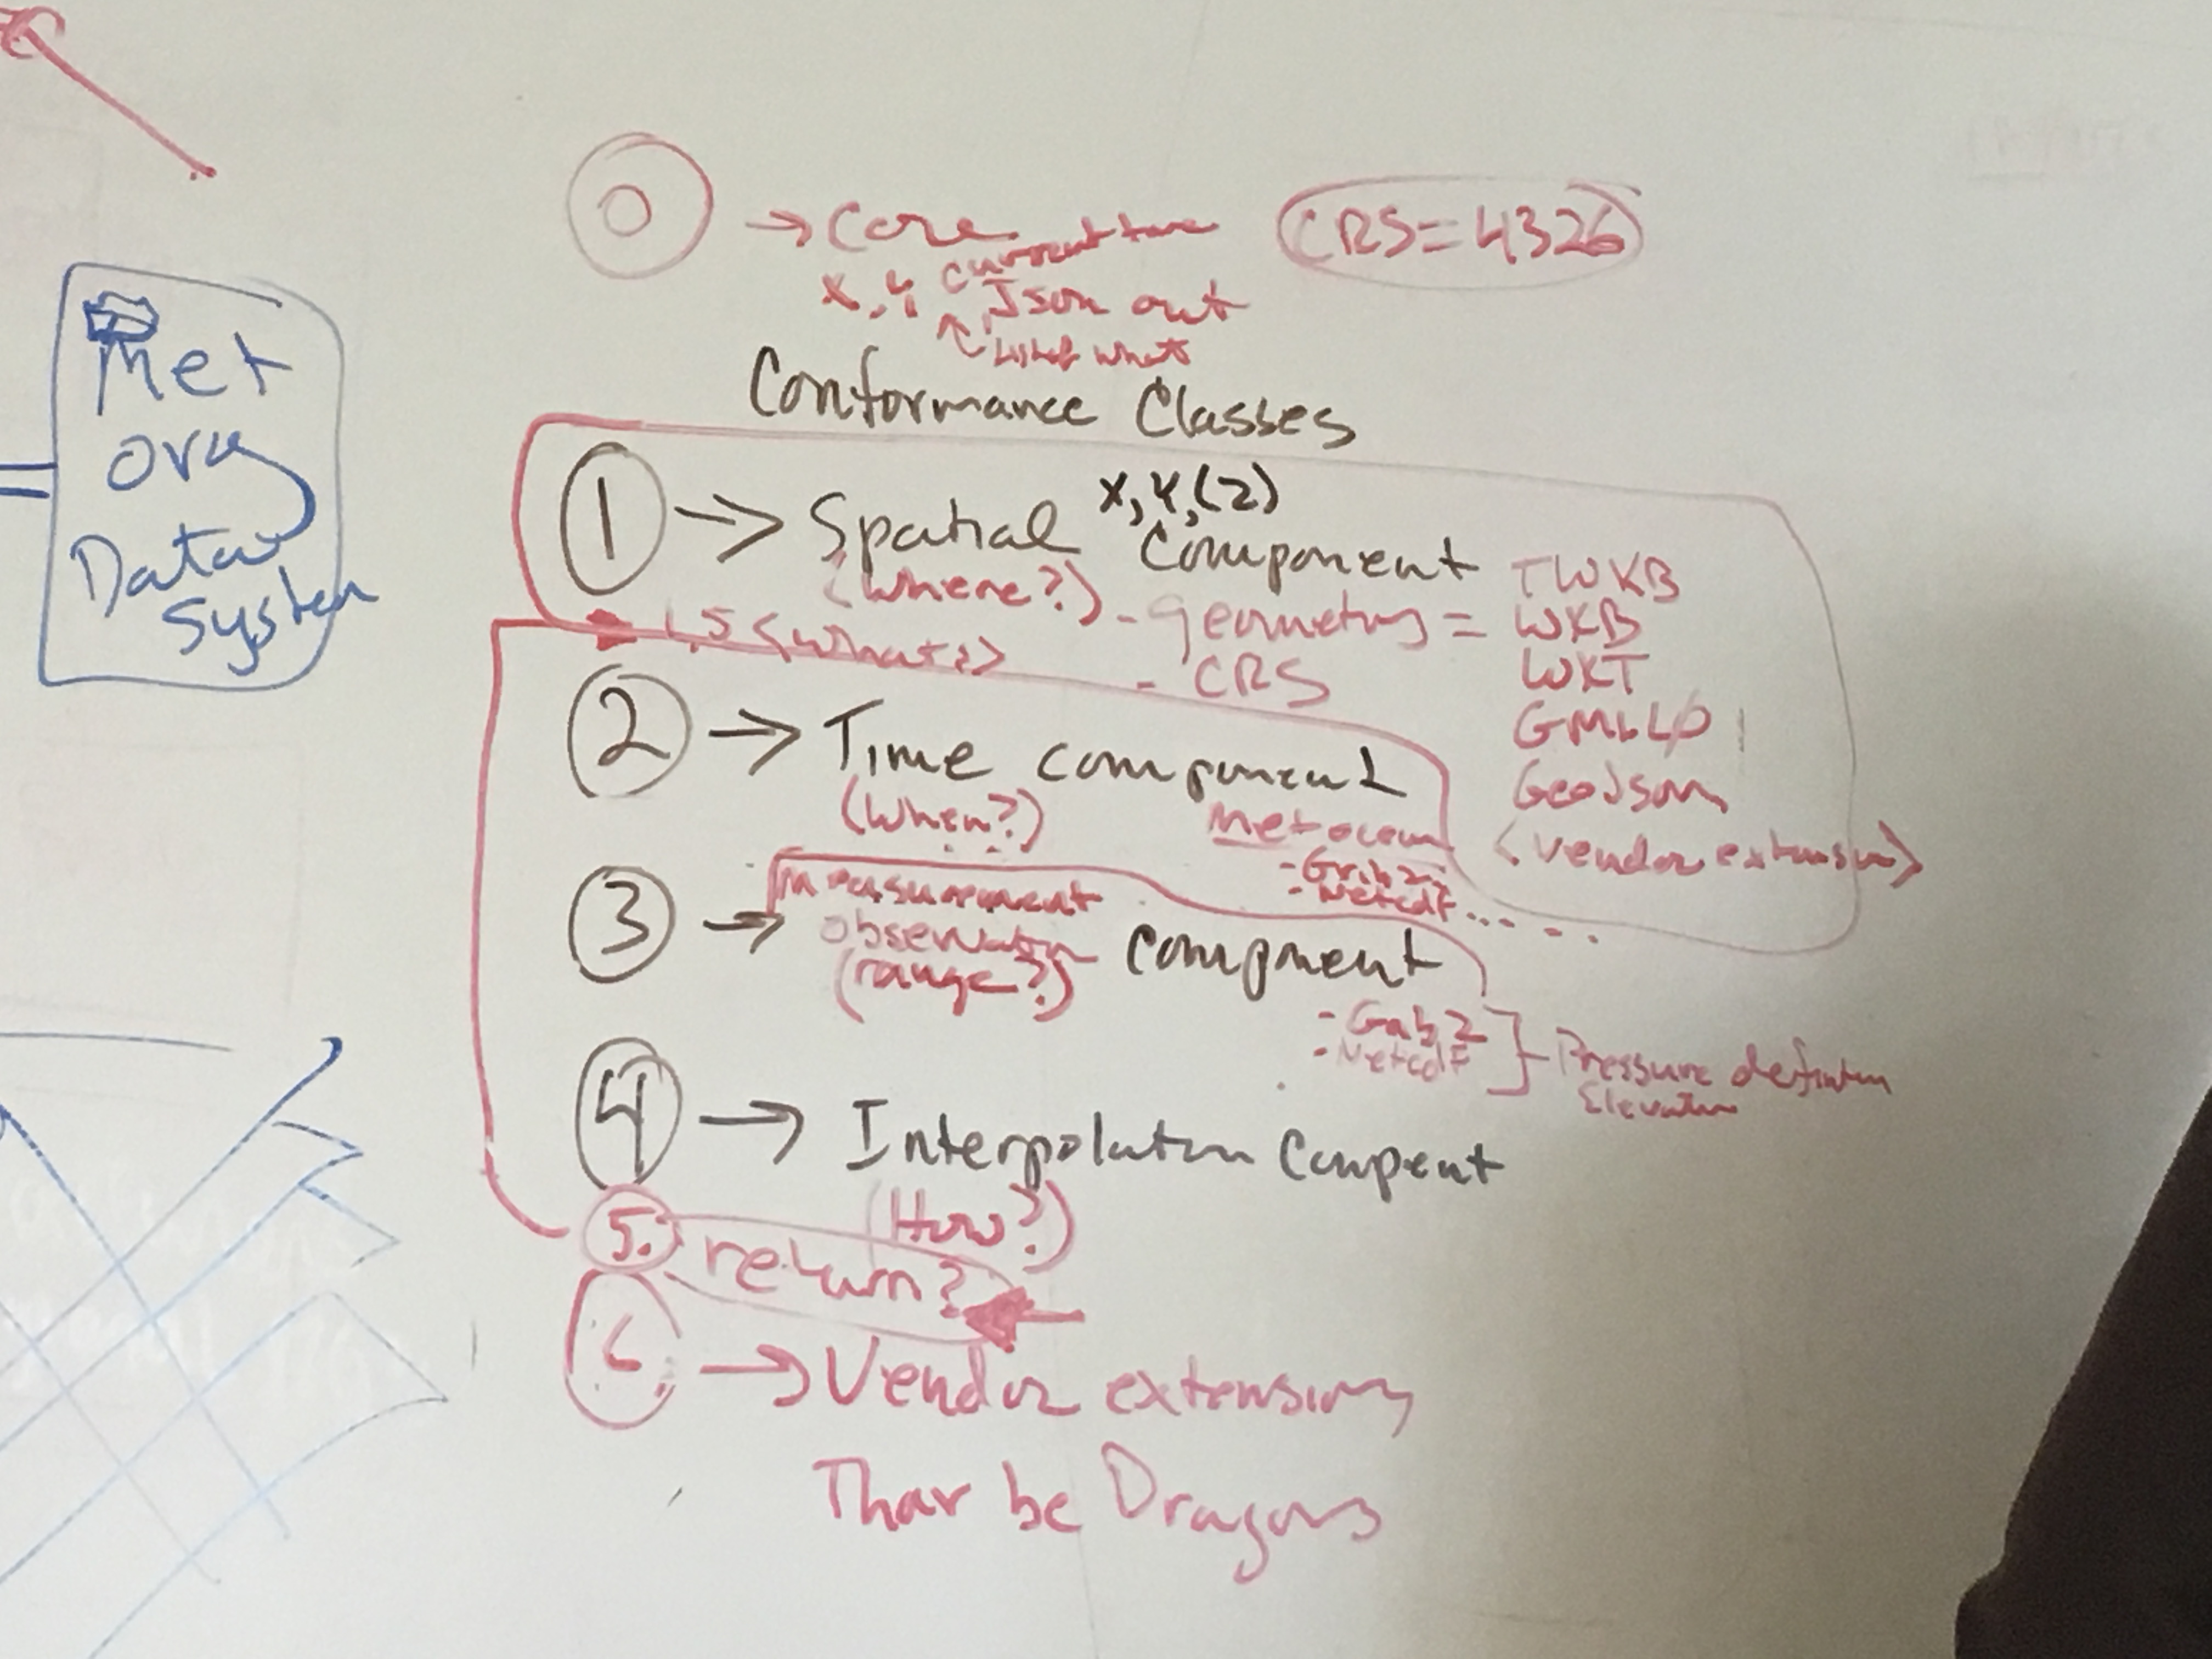 0 → Core CRS=4326
current time
x, y, Json out
list what
Conformance Classes
Met
org
Data
System
1 → Spatial Component
x, y, (z)
(Where?)
- geometry = TWKB
WKB
WKT
Geojson
<vendor extension>
1.5 <What?>
- CRS
2 → Time component
(When?)
Metocean
- Grib2
- Netcdf ....
3 → measurement
observatn component
(range?)
- Grib 2
- Netcdf
Pressure definitn
Elevatn
4 → Interpolatn Compent
(How?)
5. return?
6. → Vendor extensions
Thar be Dragons